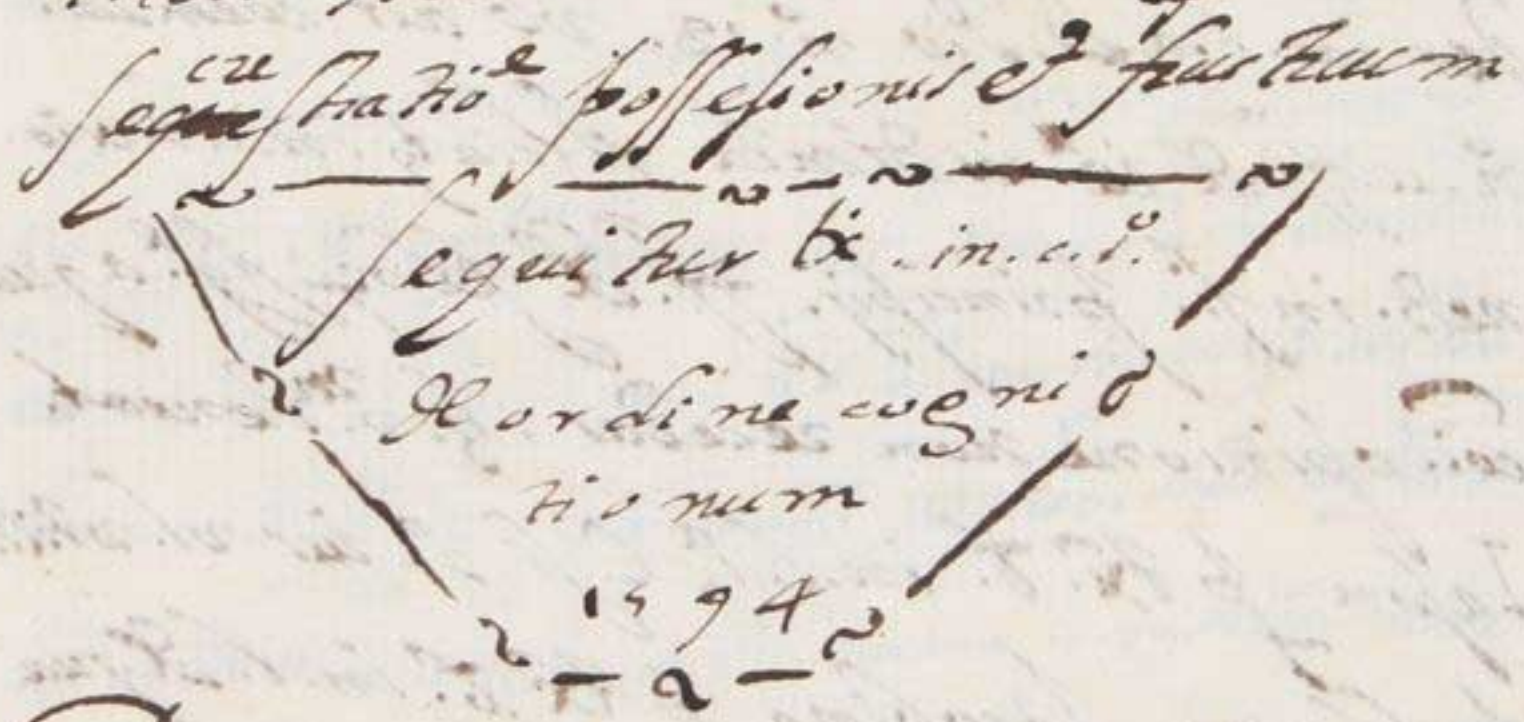 sequestratioe possessionis et fructuum
cre
sequitur tx. in. c. 1o.
De ordine cogni
tionum
1594